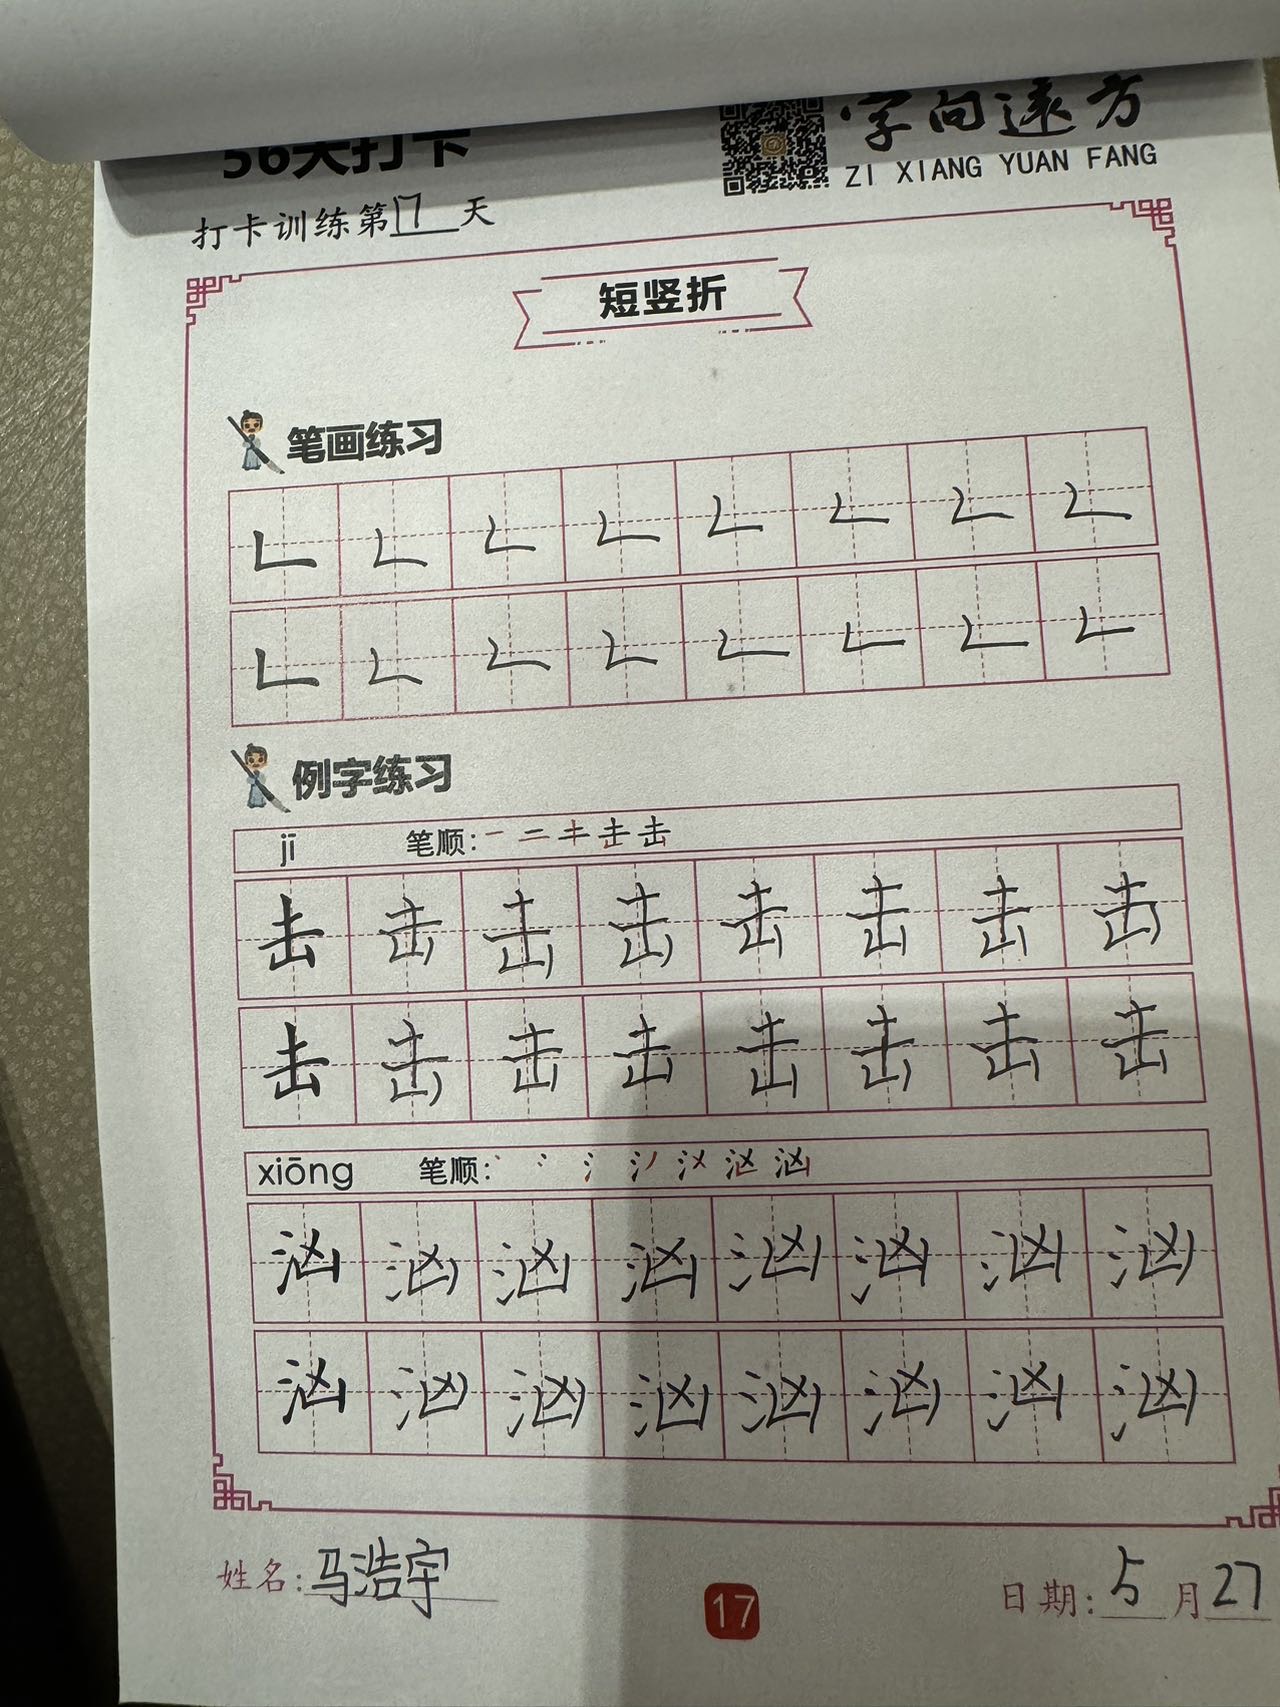 56天打卡
字向远方
ZI XIANG YUAN FANG
打卡训练第17天
短竖折
笔画练习
𠃊 𠃊 𠃊 𠃊 𠃊 𠃊 𠃊 𠃊
𠃊 𠃊 𠃊 𠃊 𠃊 𠃊 𠃊 𠃊
例字练习
jī 笔顺: 一 二 キ 击 击
击 击 击 击 击 击 击 击
击 击 击 击 击 击 击 击
xiōng 笔顺: 丶 冫 氵 汹
汹 汹 汹 汹 汹 汹 汹 汹
汹 汹 汹 汹 汹 汹 汹 汹
姓名: 马浩宇
17
日期: 5 月 27